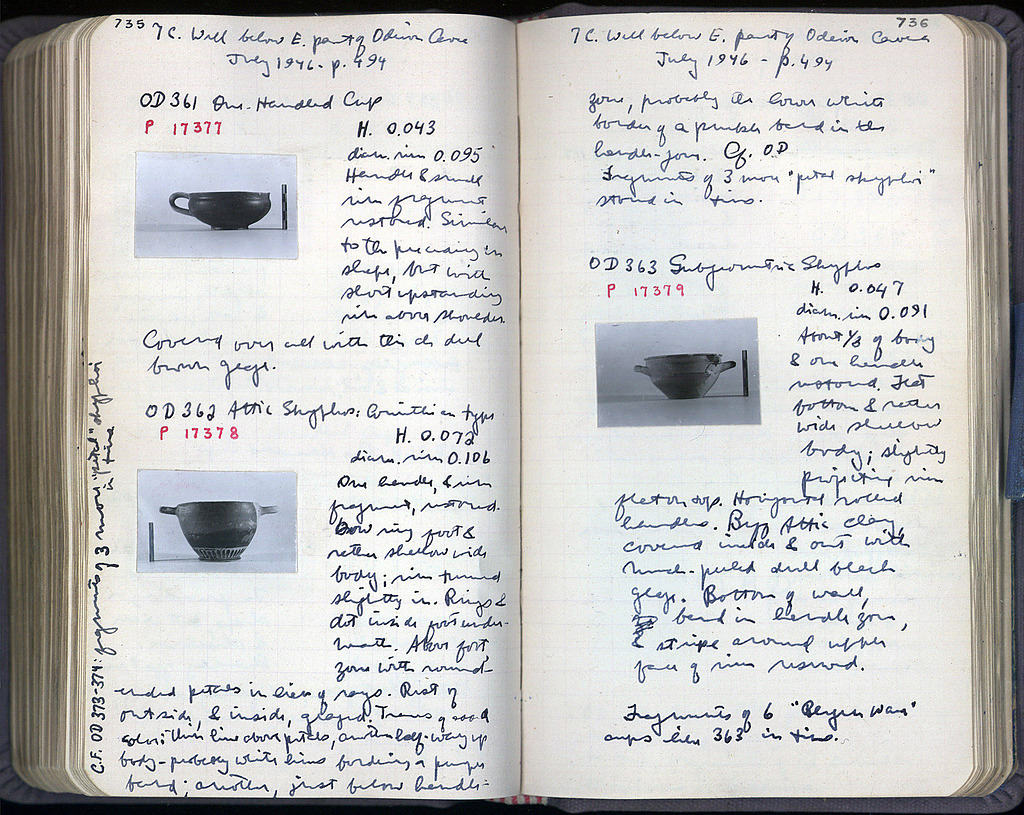 735
7 C. Well below E. part of Odeion Cavea
July 1946 - p. 494
OD 361 One-Handled Cup
P 17377
H. 0.043
diam. rim 0.095
Handle & small
rim fragment
restored. Similar
to the preceding in
shape, but with
short upstanding
rim above shoulder.
Covered over all with thin dull
brown glaze.
OD 362 Attic Skyphos: Corinthian type
P 17378
H. 0.072
diam. rim 0.106
One handle, & rim
fragment, restored.
Low ring foot &
rather shallow wide
body; rim turned
slightly in. Rings &
dot inside foot under-
neath. Above foot,
zone with round-
ended petals in lieu of rays. Rest of
outside, & inside, glazed. Traces of added
color: thin line above petals, another half-way up
body - probably white lines bordering a purple
band; another, just below handle-
C.F. OD 373-374: fragments of 3 more "petal" skyphoi
in tins
736
7 C. Well below E. part of Odeion Cavea
July 1946 - p. 494
zone, probably the lower white
border of a purple band in the
handle-zone. Cf. OD
Fragments of 3 more "petal skyphoi"
stored in tins.
OD 363 Subgeometric Skyphos
P 17379
H. 0.047
diam. rim 0.091
About 1/3 of body
& one handle
restored. Flat
bottom & rather
wide shallow
body; slightly
projecting rim
flat on top. Horizontal rolled
handles. Buff Attic clay,
covered inside & out with
much-peeled dull black
glaze. Bottom of wall,
band in handle zone,
& stripe around upper
face of rim reserved.
Fragments of 6 "Phaleron Ware"
cups like 363 in tins.